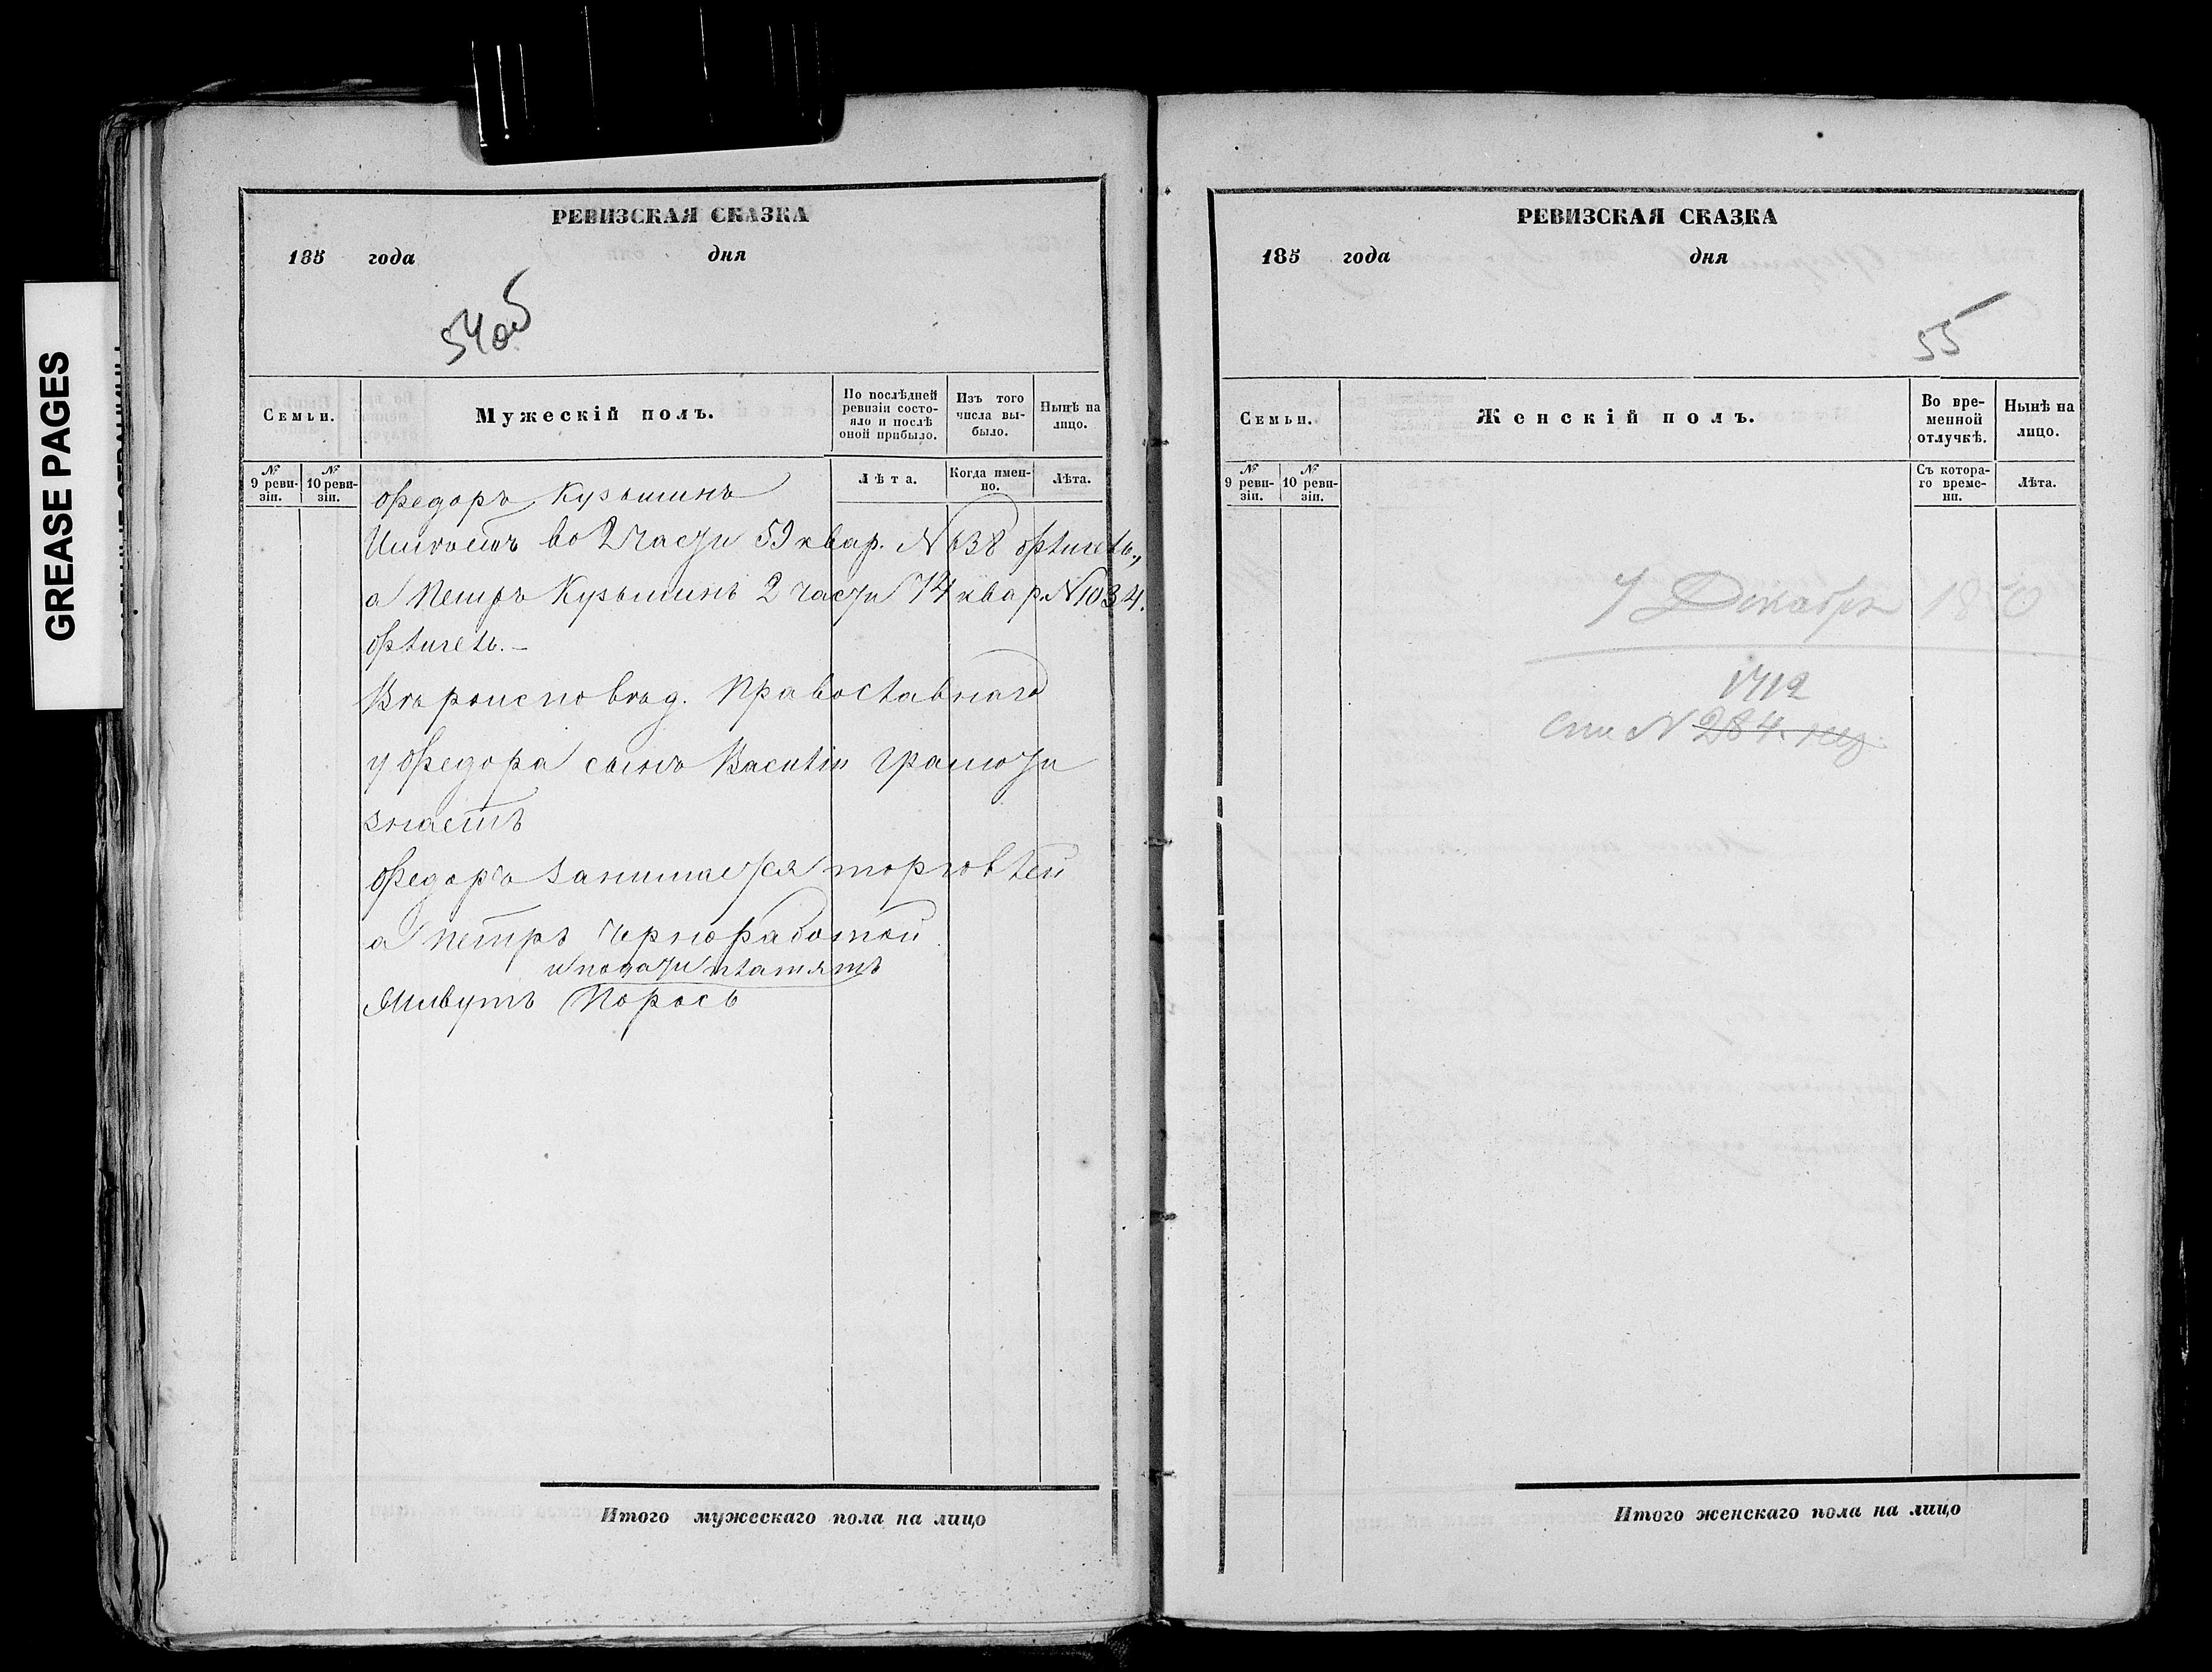 GREASE PAGES
РЕВИЗСКАЯ СКАЗКА
185 года дня
54об
Семьи.
Мужескій полъ.
По послѣдней ревизіи состояло и послѣ оной прибыло.
Изъ того числа выбыло.
Нынѣ на лицо.
№ 9 ревизіи.
№ 10 ревизіи.
Лѣта.
Когда именно.
Лѣта.
Федоръ Кузьминъ
Имѣетъ во 2 части 59 квар. № 638 флигель,
а Петръ Кузьминъ 2 части 74 квар. № 1034.
флигель. —
Вѣроисповѣд. Православнаго
у Федора сынъ Василій грамоти
знаетъ
Федоръ занимается торговлей
а Петръ черноработкой
и подати платятъ
Живутъ Порось
Итого мужескаго пола на лицо
РЕВИЗСКАЯ СКАЗКА
185 года дня
55
Семьи.
Женскій полъ.
Во временной отлучкѣ.
Нынѣ на лицо.
№ 9 ревизіи.
№ 10 ревизіи.
Съ котораго времени.
Лѣта.
7 Декабря 1850
1712
См № 284.
Итого женскаго пола на лицо